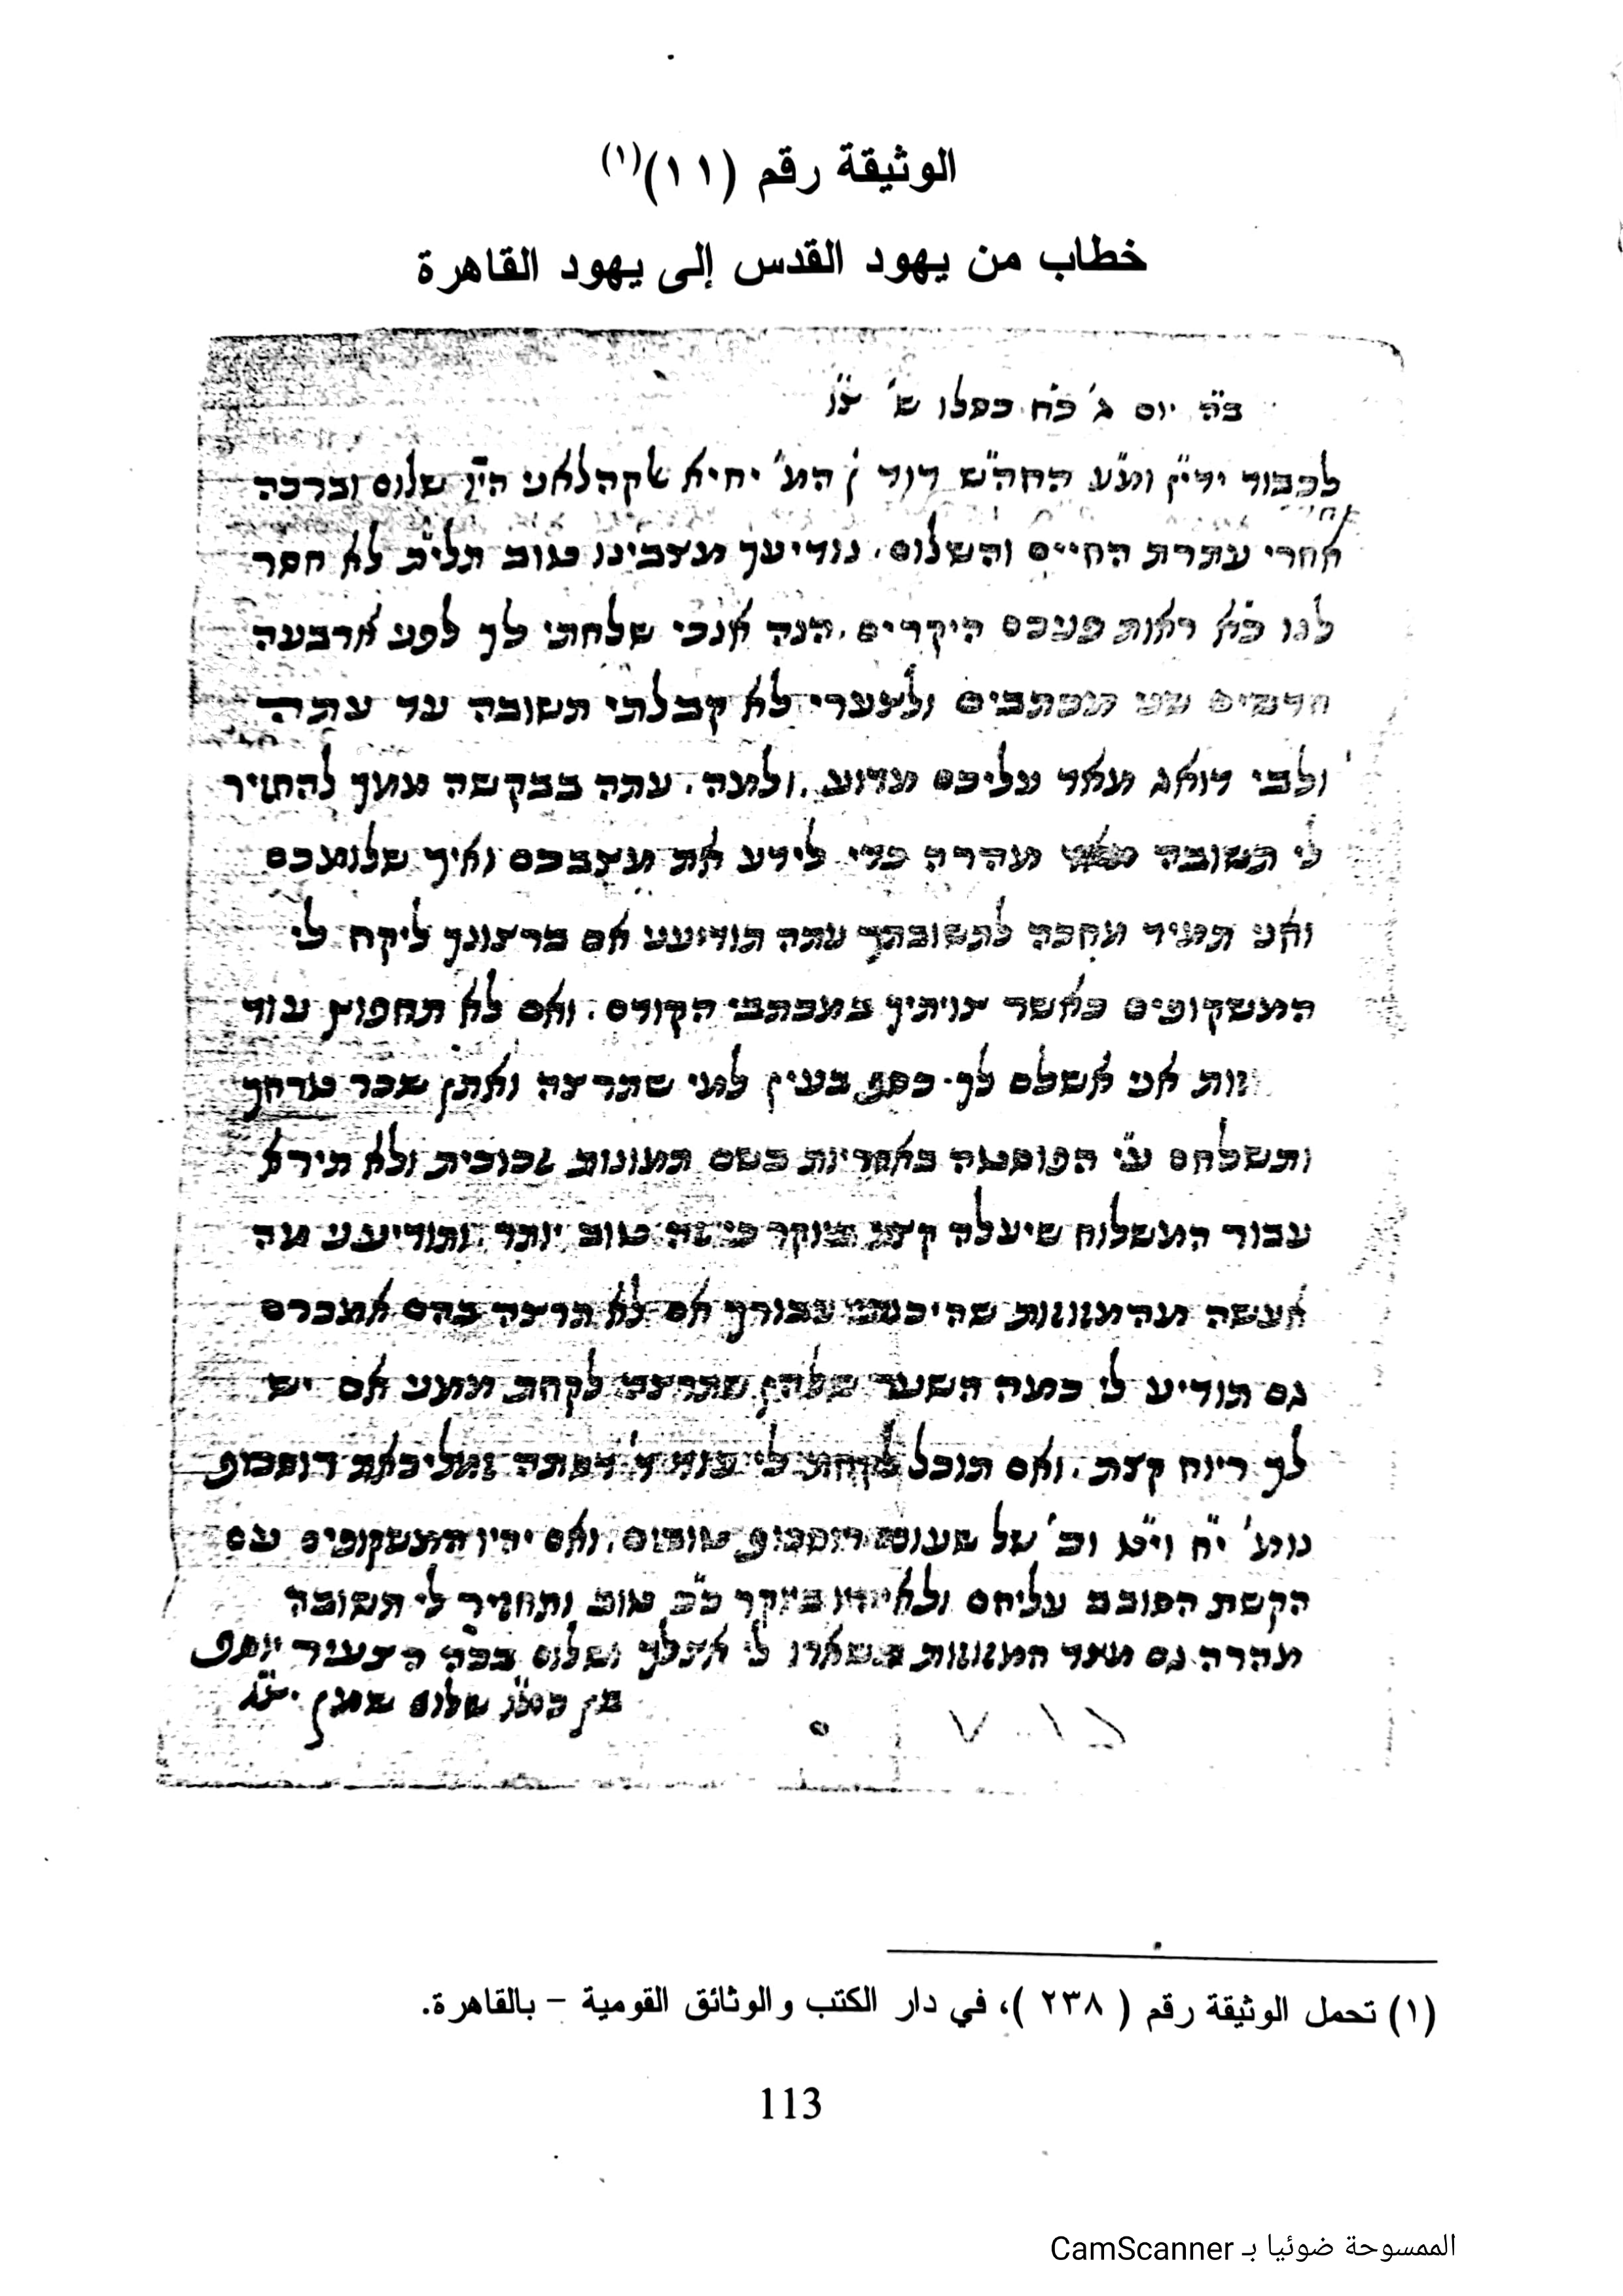 الوثيقة رقم (١١)(١)
خطاب من يهود القدس إلى يهود القاهرة
ב״ה יום ג׳ כ״ח כסלו ש׳
לכבוד ידי״ן ומ״ע החה״ש דוד ן׳ המ׳ יחיא אלקהלאני הי״ו שלום וברכה
אחרי עתרת החיים והשלום. נודיעך מצבינו טוב תלי״ת לא חסר
לנו כ״א ראות פניכם היקרים. הנה אנכי שלחתי לך לפני ארבעה
חדשים שני מכתבים ולצערי לא קבלתי תשובה עד עתה
ולבי דואג מאד עליכם מדוע. ולמה. עתה בבקשה ממך להחזיר
לי תשובה מהרה כדי לידע את מצבכם ואיך שלומכם
ואני תמיד מחכה לתשובתך עתה תודיעני אם ברצונך ליקח לי
המשקופים כאשר צויתיך במכתבי הקודם. ואם לא תחפוץ עוד
אני אשלם לך כסף בעין למי שתרצה ואתן שכר טרחך
ותשלחם ע״י הפוסטה באחריות בשם תמונות זכוכית ולא תירא
עבור המשלוח שיעלה קצת ביוקר כי זה טוב יותר ותודיעני מה
אעשה מהמזוזות שהיכנתי עבורך אם לא תרצה בהם אמכרם
גם תודיע לי כמה השער שלהן שתרצה לקחת ממני אם יש
לך ריוח קצת. ואם תוכל לקחת לי עוד
נומ׳ י״ח וי״ט וכ׳ של שעות רוסכופ טובים. ואם יהיו המשקופים עם
הקשת הסובב עליהם ולא יהיו ביוקר כ״כ טוב ותחזיר לי תשובה
מהרה גם מצד המזוזות שנשארו לי אצלך ושלום בכ״ה הצעיר יוסף
בן כמו״ שלום
(١) تحمل الوثيقة رقم ( ٢٣٨ )، في دار الكتب والوثائق القومية – بالقاهرة.
113
الممسوحة ضوئيا بـ CamScanner